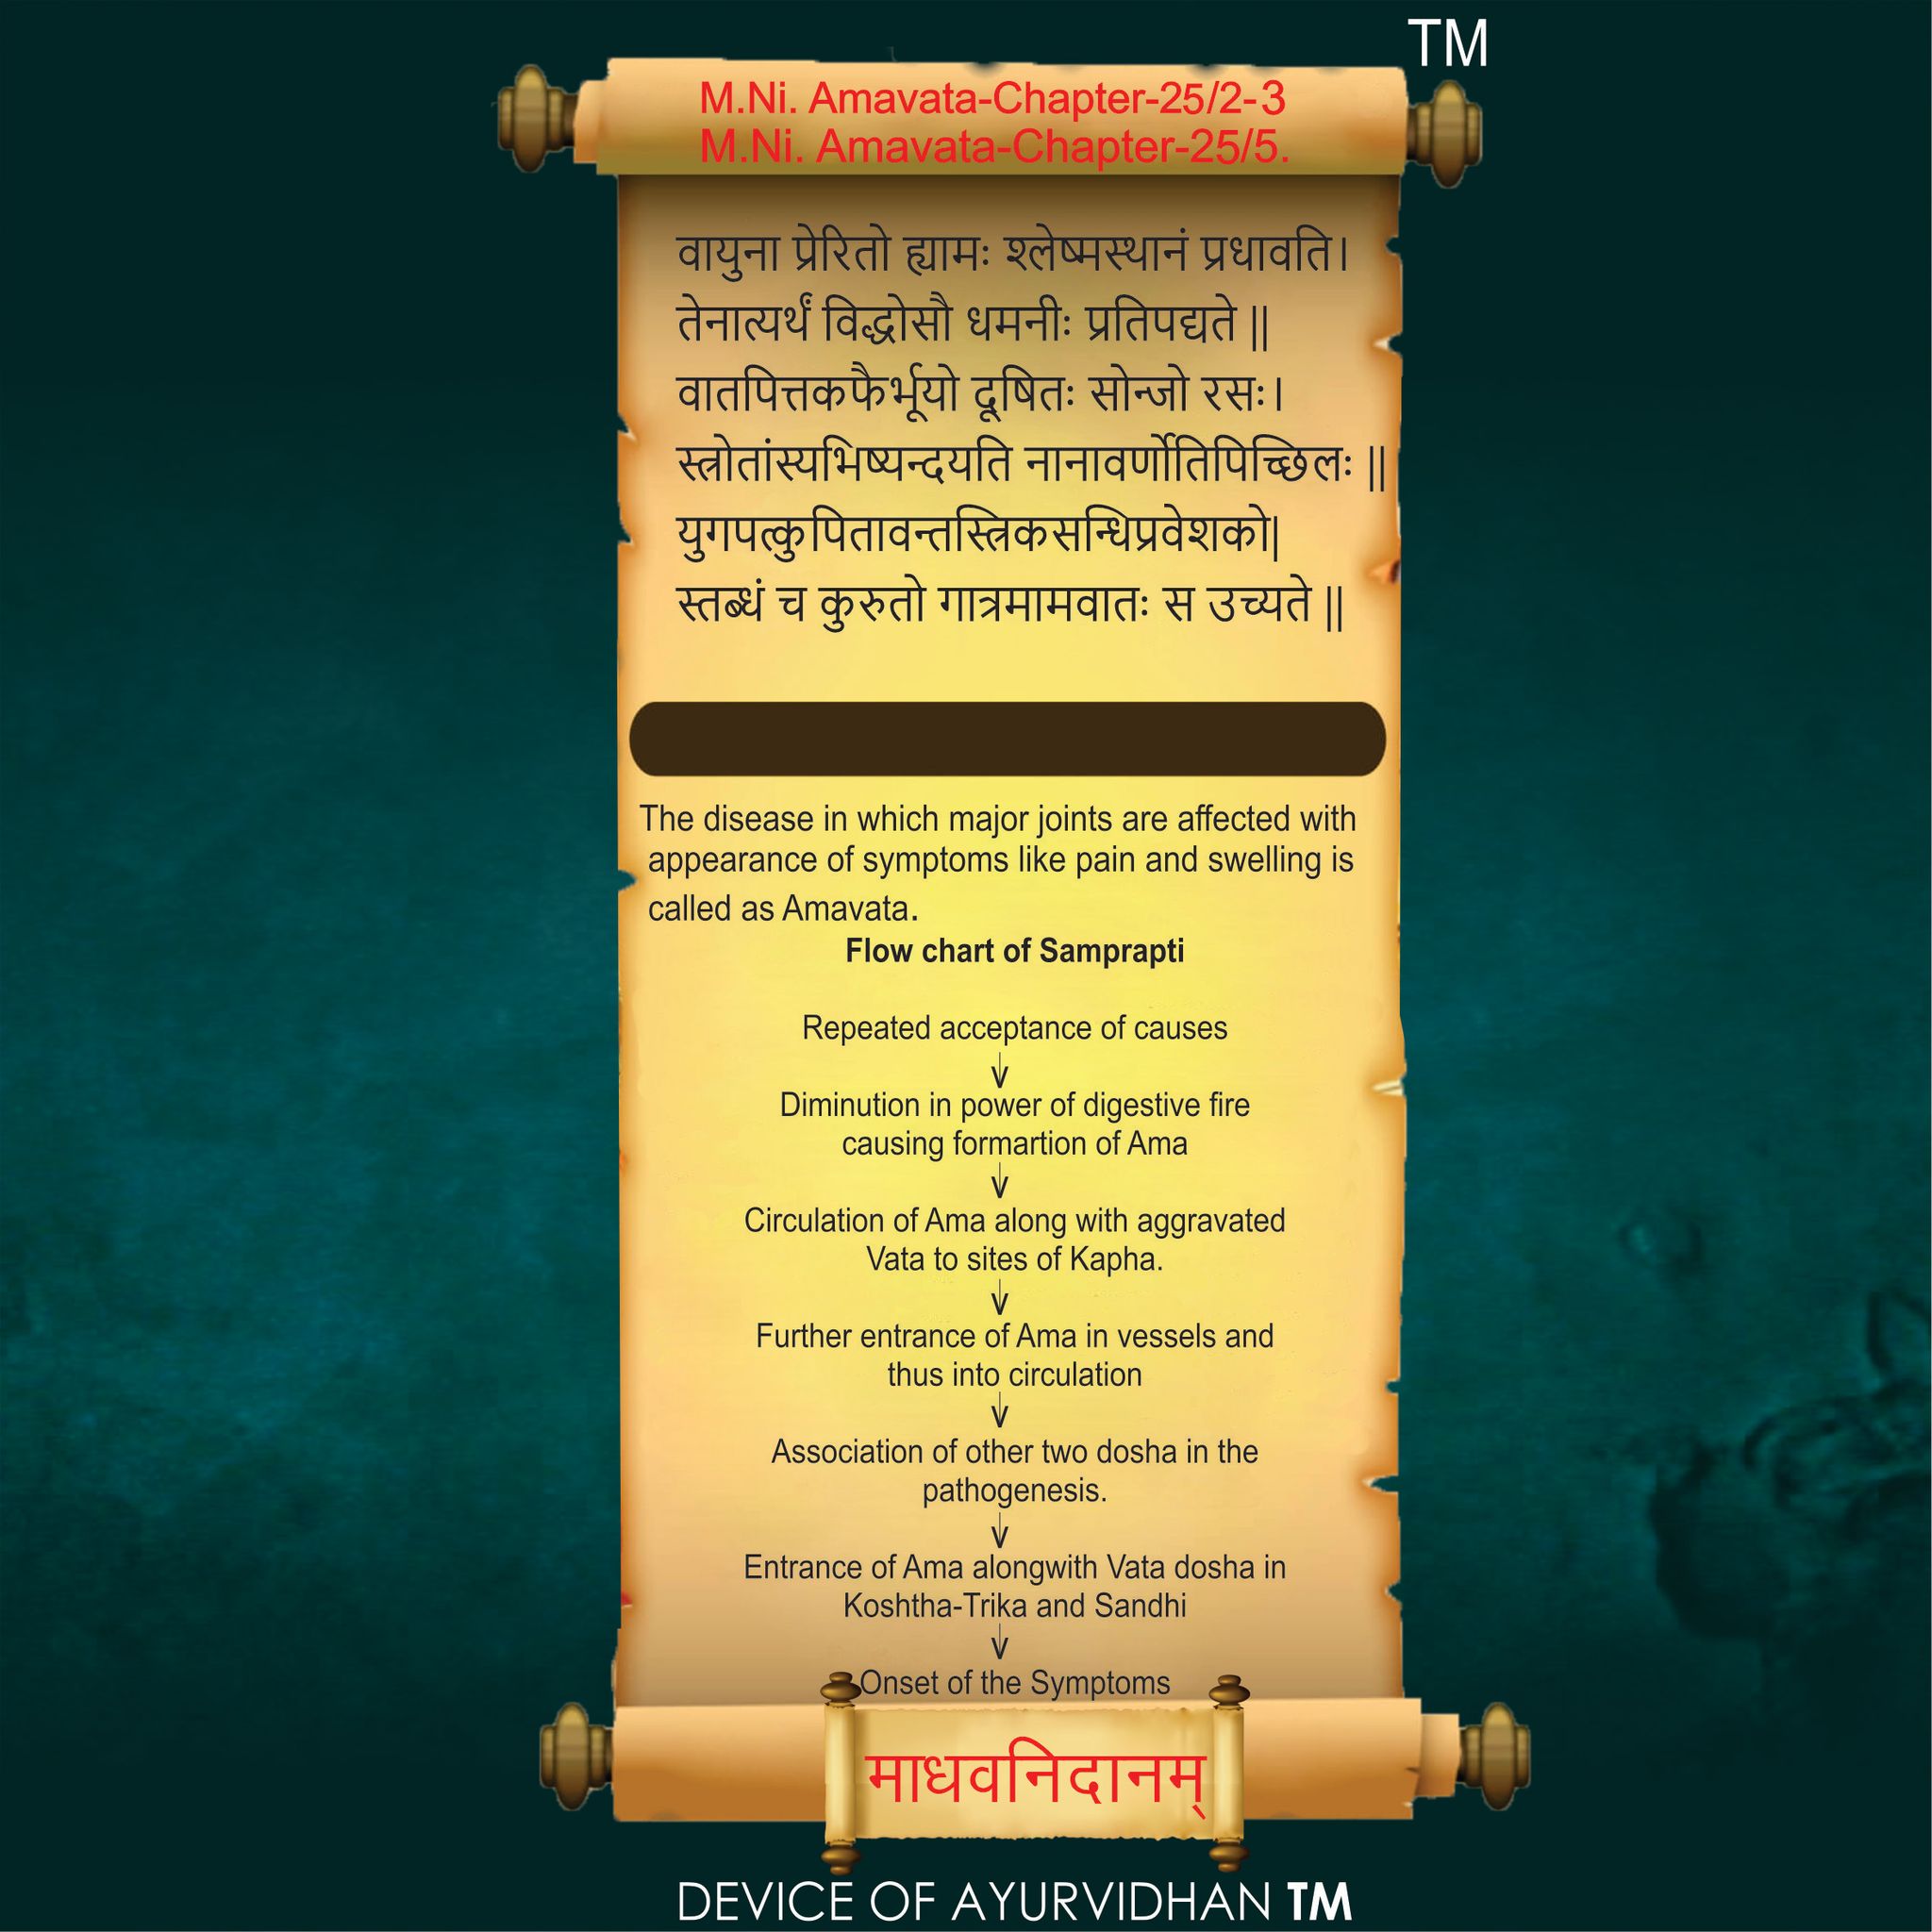 TM
M.Ni. Amavata-Chapter-25/2-3
M.Ni. Amavata-Chapter-25/5.
वायुना प्रेरितो ह्यामः श्लेष्मस्थानं प्रधावति।
तेनात्यर्थं विद्धोसौ धमनीः प्रतिपद्यते ||
वातपित्तकफैर्भूयो दूषितः सोन्जो रसः।
स्त्रोतांस्यभिष्यन्दयति नानावर्णोतिपिच्छिलः ||
युगपत्कुपितावन्तस्त्रिकसन्धिप्रवेशको|
स्तब्धं च कुरुतो गात्रमामवातः स उच्यते ||
The disease in which major joints are affected with
appearance of symptoms like pain and swelling is
called as Amavata.
Flow chart of Samprapti
Repeated acceptance of causes
Diminution in power of digestive fire
causing formartion of Ama
Circulation of Ama along with aggravated
Vata to sites of Kapha.
Further entrance of Ama in vessels and
thus into circulation
Association of other two dosha in the
pathogenesis.
Entrance of Ama alongwith Vata dosha in
Koshtha-Trika and Sandhi
Onset of the Symptoms
माधवनिदानम्
DEVICE OF AYURVIDHAN TM